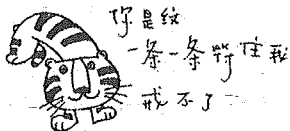 你是纹
一条一条符住我
戒不了